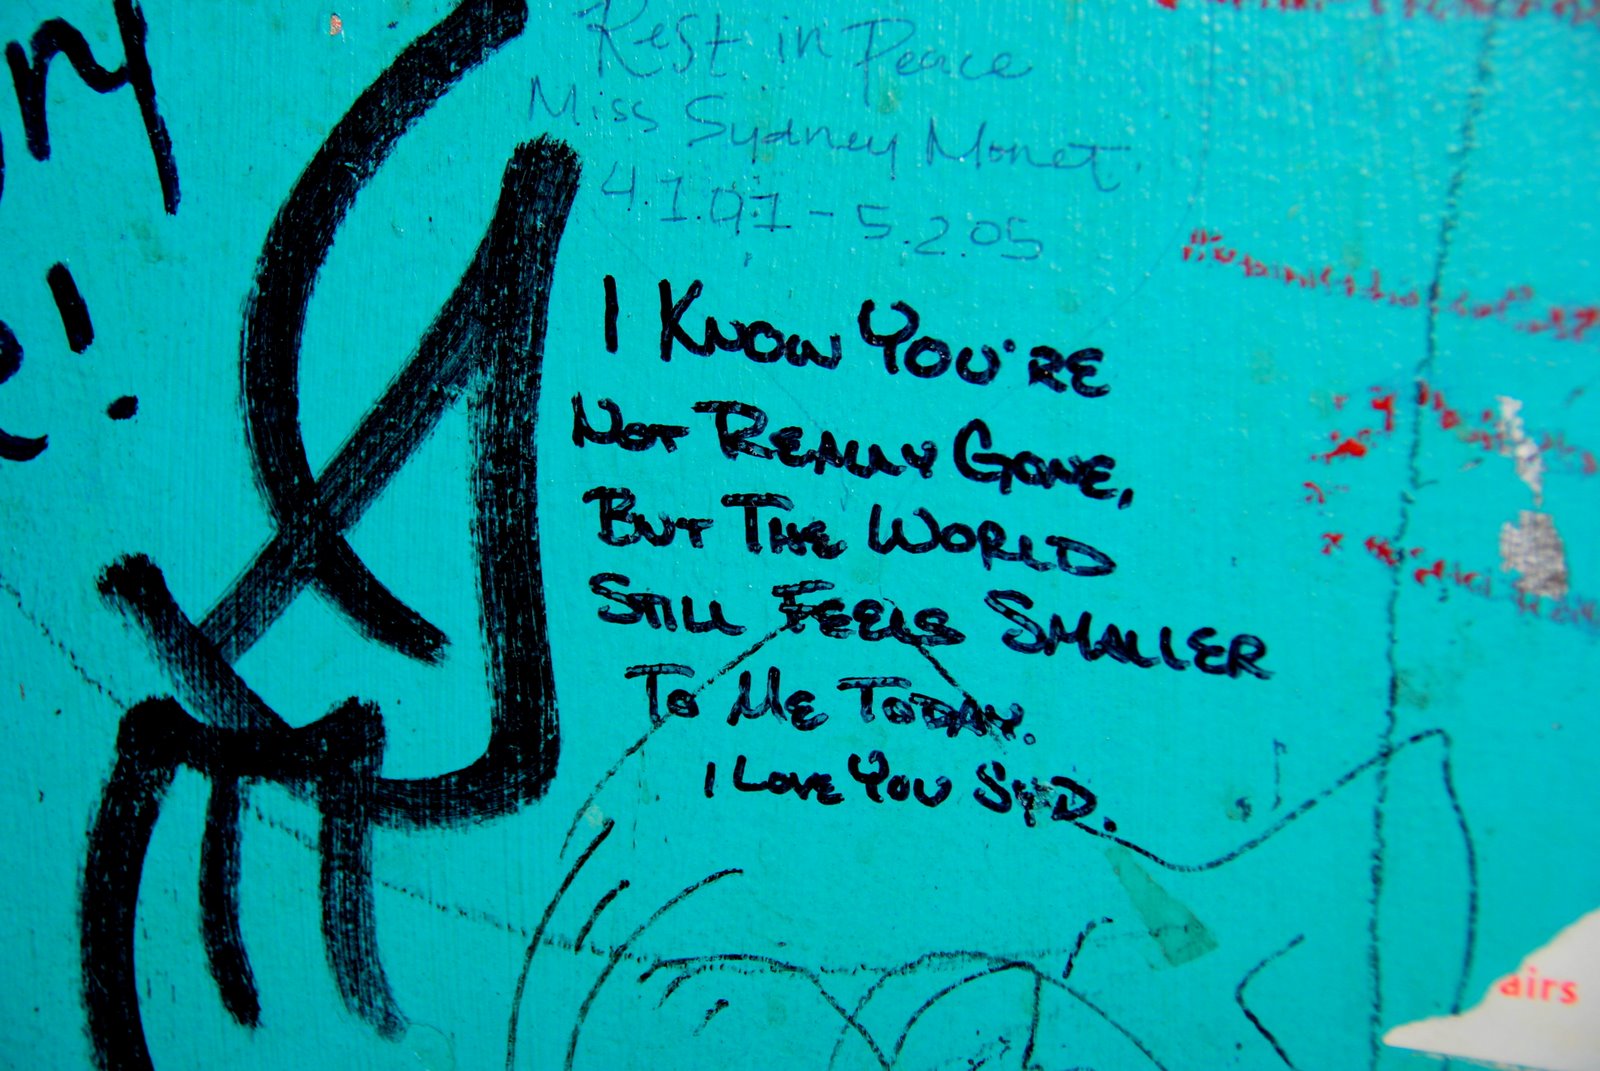 Rest in Peace
Miss Sydney Monet.
4.1.91 - 5.2.05
I KNOW YOU'RE
NOT REALLY GONE,
BUT THE WORLD
STILL FEELS SMALLER
TO ME TODAY.
I LOVE YOU SYD.
airs